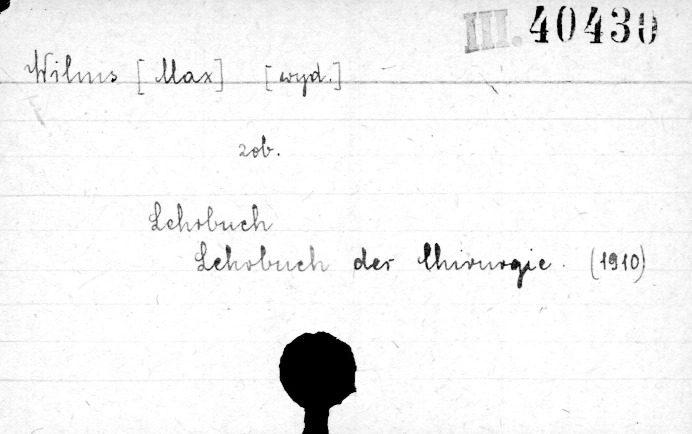 III. 40430
Wilms [Max] [wyd.]
zob.
Lehrbuch
Lehrbuch der Chirurgie. (1910)